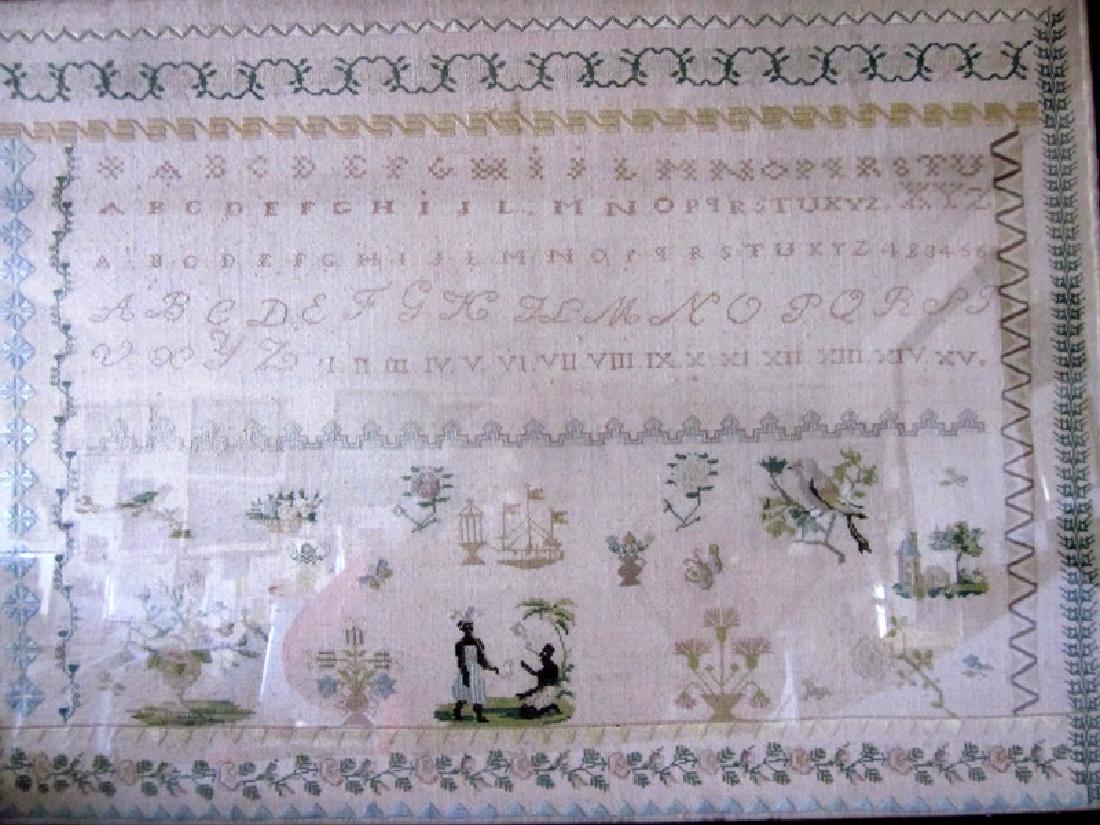 A B C D E F G H I J L M N O P Q R S T U
X Y Z
A B C D E F G H I J L M N O P Q R S T U X Y Z
A B C D E F G H I J L M N O P Q R S T U X Y Z 1 2 3 4 5 6
A B C D E F G H I L M N O P Q R S T
V X Y Z I. II III IV. V. VI. VII. VIII IX. X XI XII XIII XIV. XV.